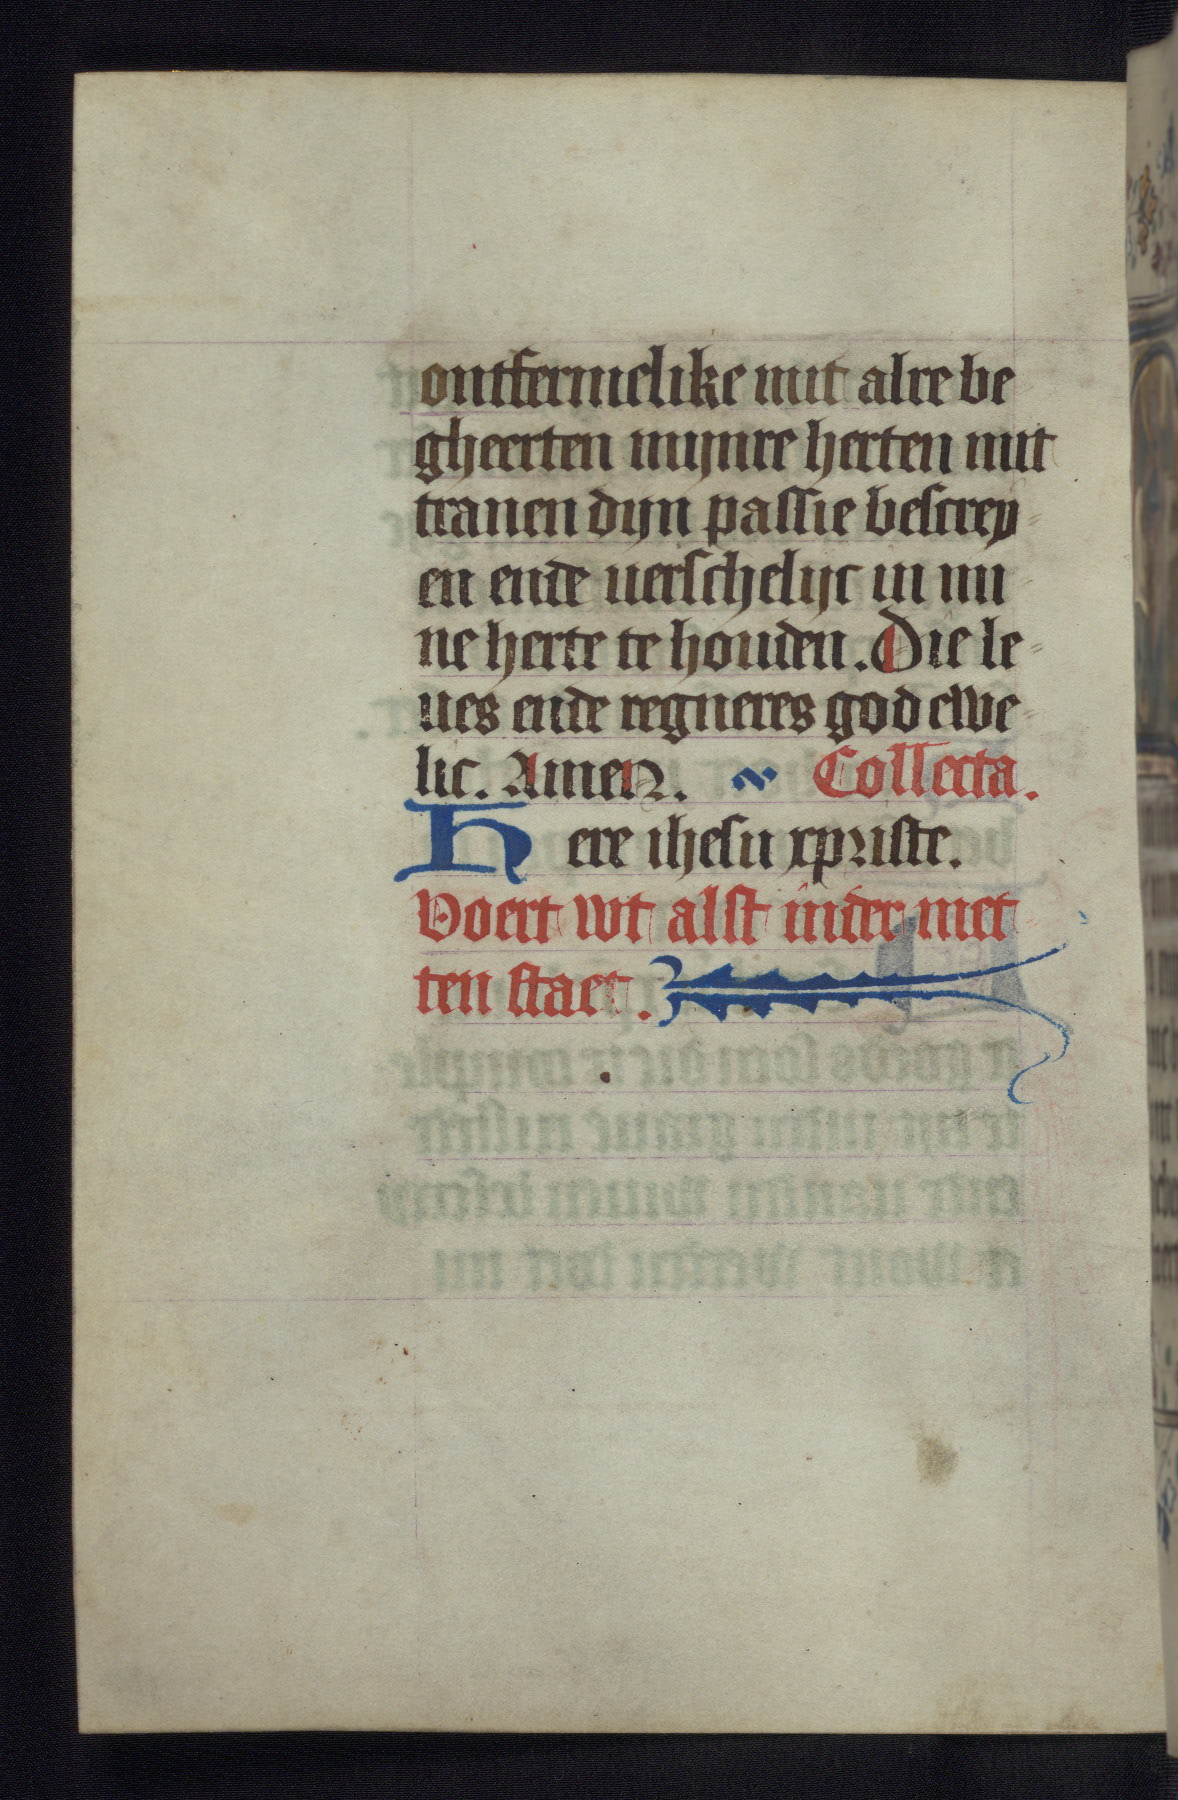 ontfermelike mit alre be
gheerten mijnre herten mit
tranen dijn passie bescrey⸗
en ende uerschelijc in mi
ne herte te houden. Die le⸗
ues ende regneres god ewe⸗
lic. Amen. Collecta.
Here ihesu xpriste.
Voert wt alst inder met
ten staet.